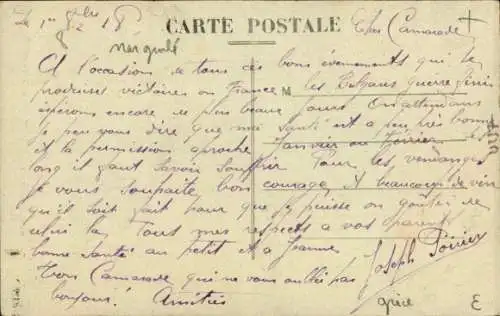 Le 1er 8bre 18
CARTE POSTALE
Cher Camarade
A l'occasion de tous ces bons évènements qui se
produises victoires en France les Bulgares guerre finis
espérons encore de plus beaux jours. En attendant
je peu vous dire que ma santé est a peu près bonne
et la permission aproche Janvier ou Février
long il faut savoir souffrir Pour les vendanges
Je vous souhaite bon courage et beaucoup de vin
qu'il soit fait pour que j'y puisse en goûter de
celui la, Tous mes respects a vos parents
bonne santé au petit et a Jeanne
Ton Camarade qui ne vous oublie pas
bonjours! Amitiés
Joseph Poirier
grèce
M
E